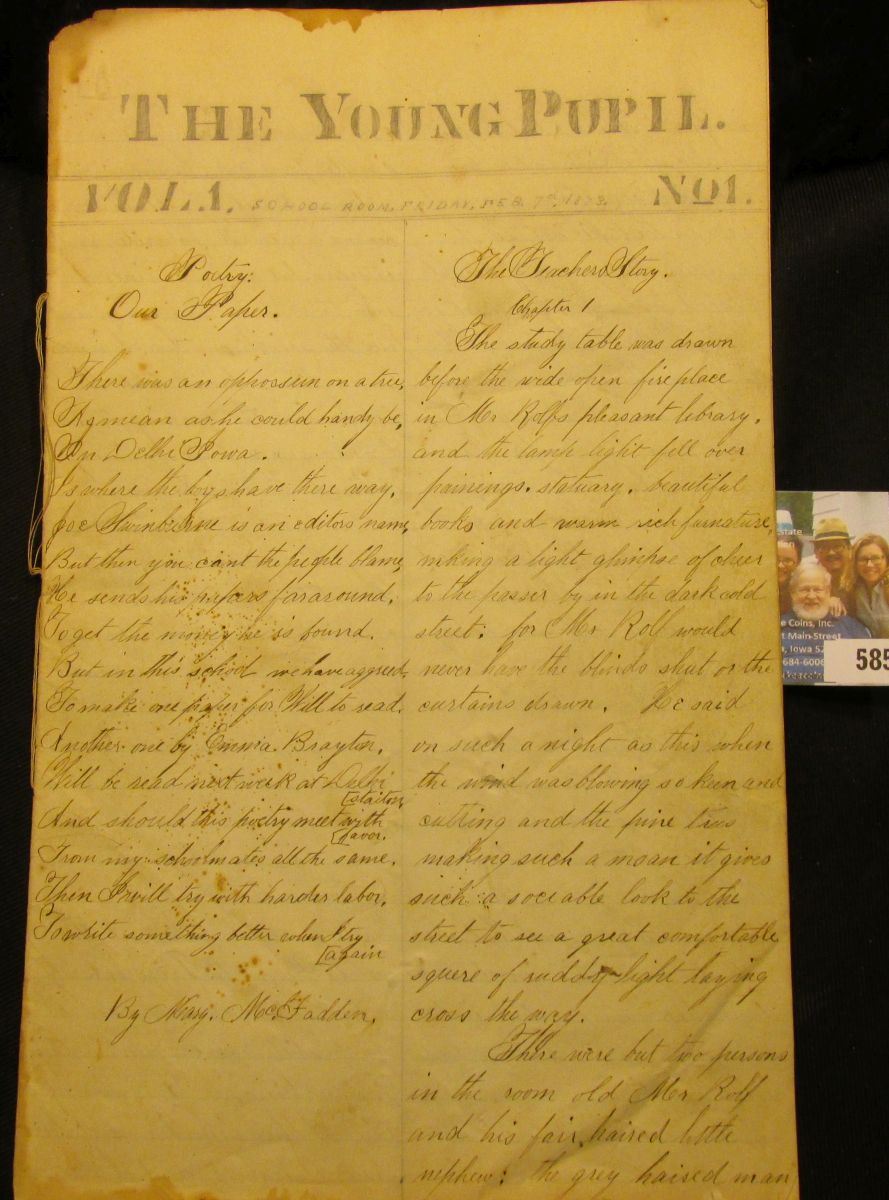 THE YOUNG PUPIL.
VOL.1. SCHOOL ROOM, FRIDAY, FEB. 7th, 1873. No1.
Poetry:
Our Paper.
There was an opposum on a tree,
As mean as he could handy be,
In Delhi Iowa.
Is where the boys have there way.
Joe Swinburne is an editors name,
But then you cant the people blame
He sends his papers far around.
To get the money he is bound.
But in this school we have aggreed,
To make one paper for Will to read.
Another one by Emma Brayton.
Will be read next week at Delhi
[staiton
And should this poetry meet with
[favor.
From my schoolmates all the same.
Then I will try with harder labor.
To write something better when I try
[again
By Mary. McFadden.
The Teachers Story.
Chapter 1
The study table was drawn
before the wide open fireplace
in Mr Rolfs pleasant library.
and the lamp light fell over
painings. statuary. beautiful
books and warm rich furnature,
making a light glimhse of cheer
to the passer by in the dark cold
street: for Mr Rolf would
never have the blinds shut or the
curtains drawn. He said
on such a night as this when
the wind was blowing so keen and
cutting and the pine trees
making such a moan it gives
such a sociable look to the
street to see a great comfortable
squere of ruddy light laying
cross the way.
There were but two persons
in the room old Mr Rolf
and his fair haired little
nephew: the grey haised man
state
e Coins, Inc.
t Main Street
, Iowa 52
684-6006
585